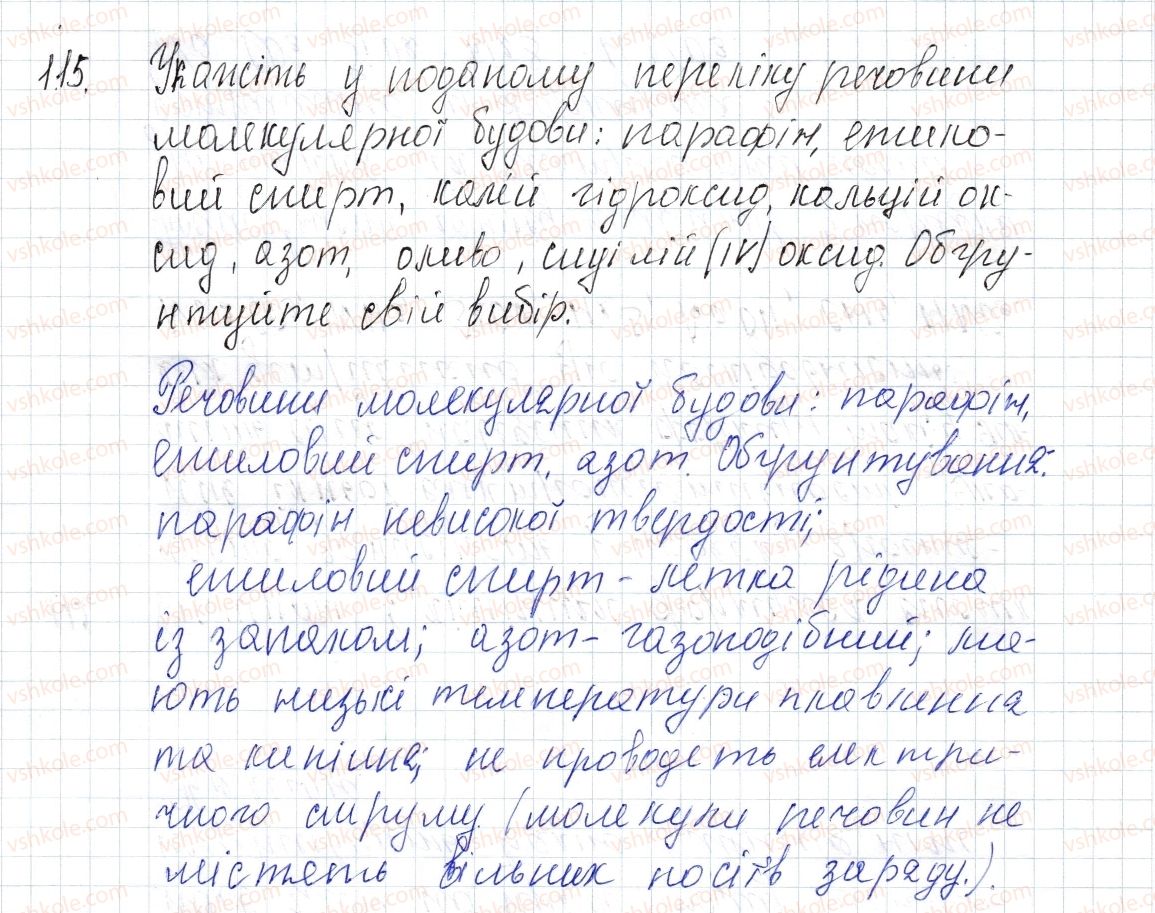 115. Укажіть у поданому переліку речовини
молекулярної будови: парафін, етило-
вий спирт, калій гідроксид, кальцій ок-
сид, азот, оливо, силіцій (IV) оксид. Обґру-
нтуйте свій вибір.
Речовини молекулярної будови: парафін,
етиловий спирт, азот. Обґрунтування:
парафін невисокої твердості;
етиловий спирт - летка рідина
із запахом; азот - газоподібний; ма-
ють низькі температури плавлення
та кипіння; не проводять електри-
чного струму (молекули речовин не
містять вільних носіїв заряду.).